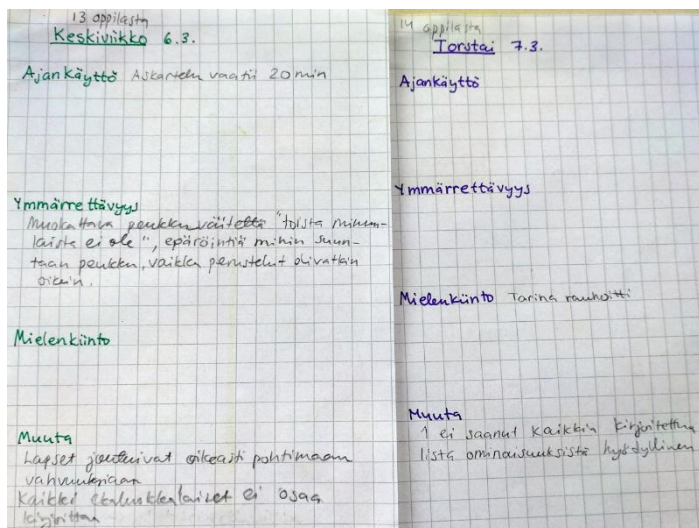 13 oppilasta
Keskiviikko 6.3.
Ajankäyttö Askartelu vaatii 20 min
Ymmärrettävyys
Muokattava peukku väitettä "toista minun-
laista ei ole", epäröintiä mihin suun-
taan peukku, vaikka perustelut olivatkin
oikein.
Mielenkiinto
Muuta
Lapset joutuivat oikeasti pohtimaan
vahvuuksiaan
Kaikki ei osaa
kirjoittaa
14 oppilasta
Torstai 7.3.
Ajankäyttö
Ymmärrettävyys
Mielenkiinto Tarina rauhoitti
Muuta
1 ei saanut kaikkia kirjoitettua
lista ominaisuuksista hyödyllinen